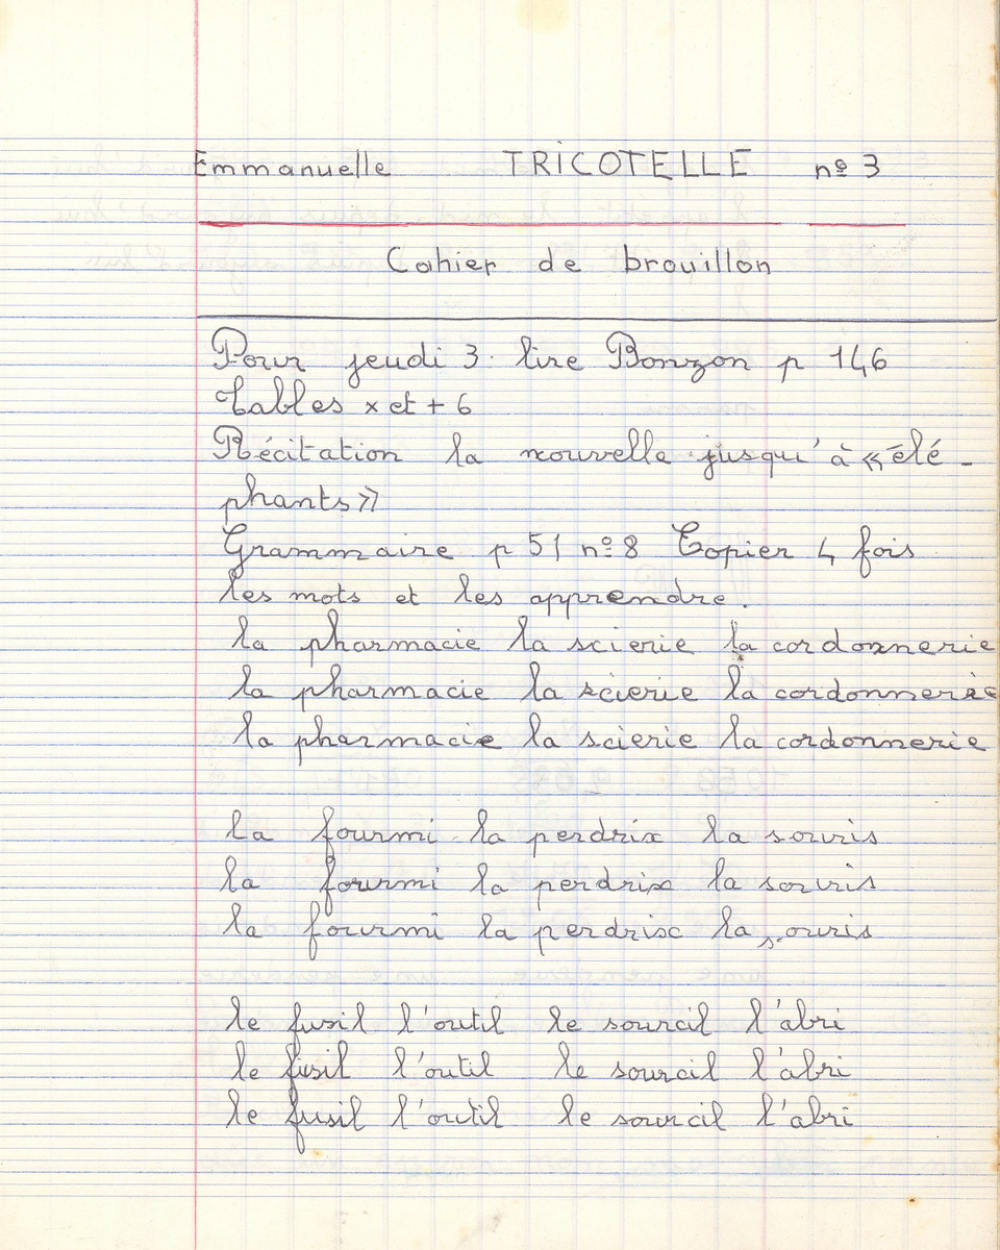 Emmanuelle TRICOTELLE nº 3
Cahier de brouillon
Pour jeudi 3. lire Bonzon p 146
Tables x et + 6
Récitation la nouvelle jusqu'à « élé-
phants »
Grammaire p 51 nº 8 Copier 4 fois
les mots et les apprendre.
la pharmacie la scierie la cordonnerie
la pharmacie la scierie la cordonnerie
la pharmacie la scierie la cordonnerie
la fourmi la perdrix la souris
la fourmi la perdrix la souris
la fourmi la perdrix la souris
le fusil l'outil le sourcil l'abri
le fusil l'outil le sourcil l'abri
le fusil l'outil le sourcil l'abri